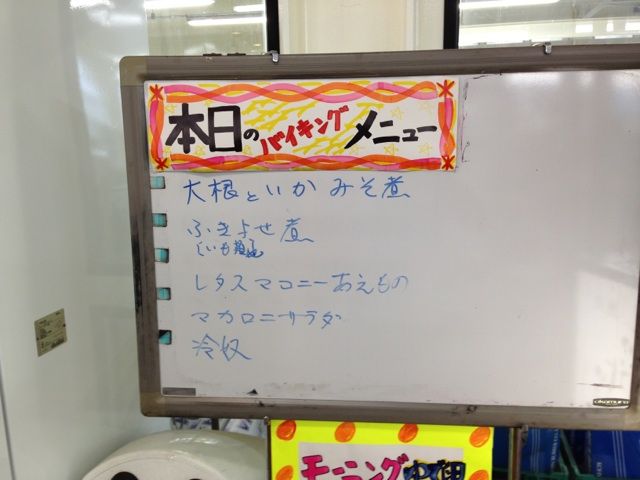 本日のバイキングメニュー
大根といか みそ煮
ふきよせ煮
レタスマロニーあえもの
マカロニサラダ
冷奴
okamura
モーニング